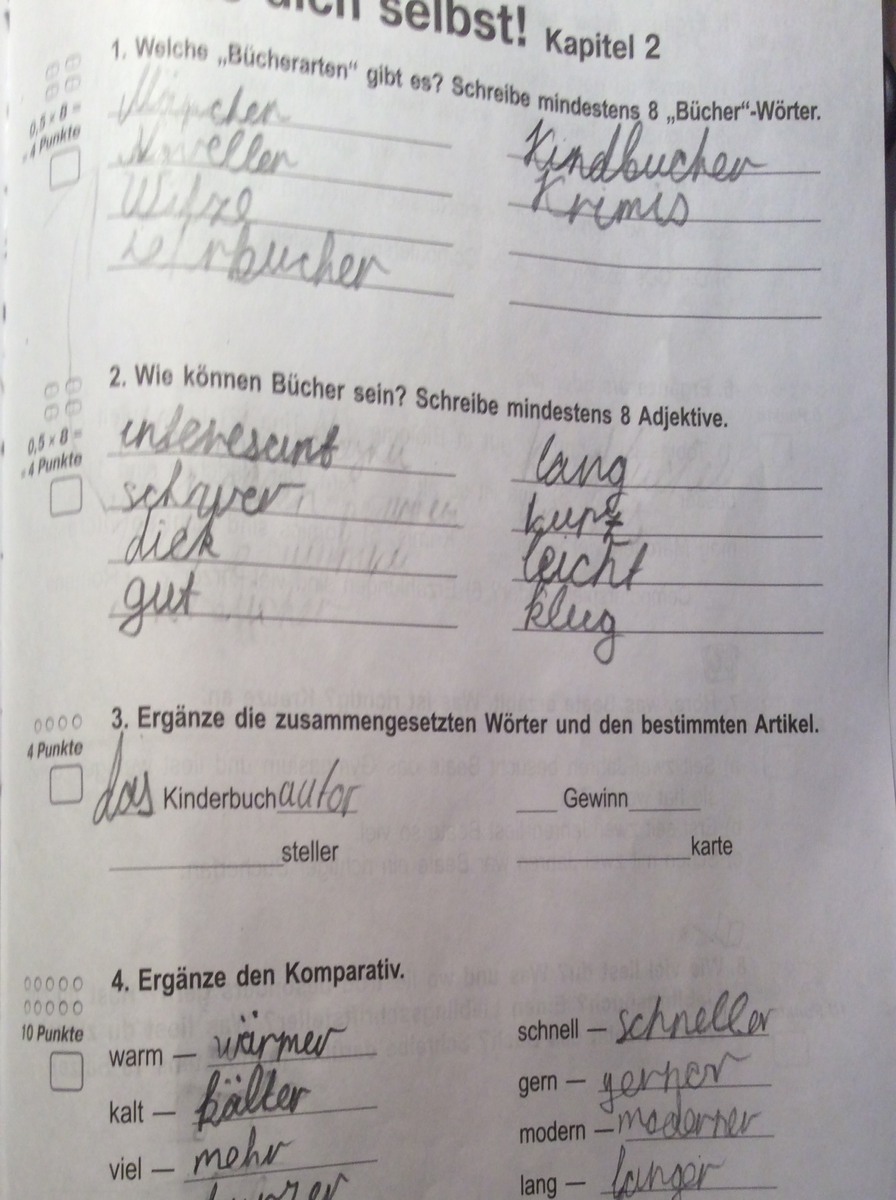 dich selbst! Kapitel 2
1. Welche „Bücherarten“ gibt es? Schreibe mindestens 8 „Bücher“-Wörter.
0,5 x 8 =
4 Punkte
Märchen
Novellen
Witze
Lehrbucher
Kindbucher
Krimis
2. Wie können Bücher sein? Schreibe mindestens 8 Adjektive.
0,5 x 8 =
4 Punkte
interesant
schwer
dick
gut
lang
kurz
leicht
klug
3. Ergänze die zusammengesetzten Wörter und den bestimmten Artikel.
4 Punkte
das Kinderbuchautor
Gewinn
steller
karte
4. Ergänze den Komparativ.
10 Punkte
warm — wärmer
kalt — kälter
viel — mehr
schnell — schneller
gern — gerner
modern — moderner
lang — langer